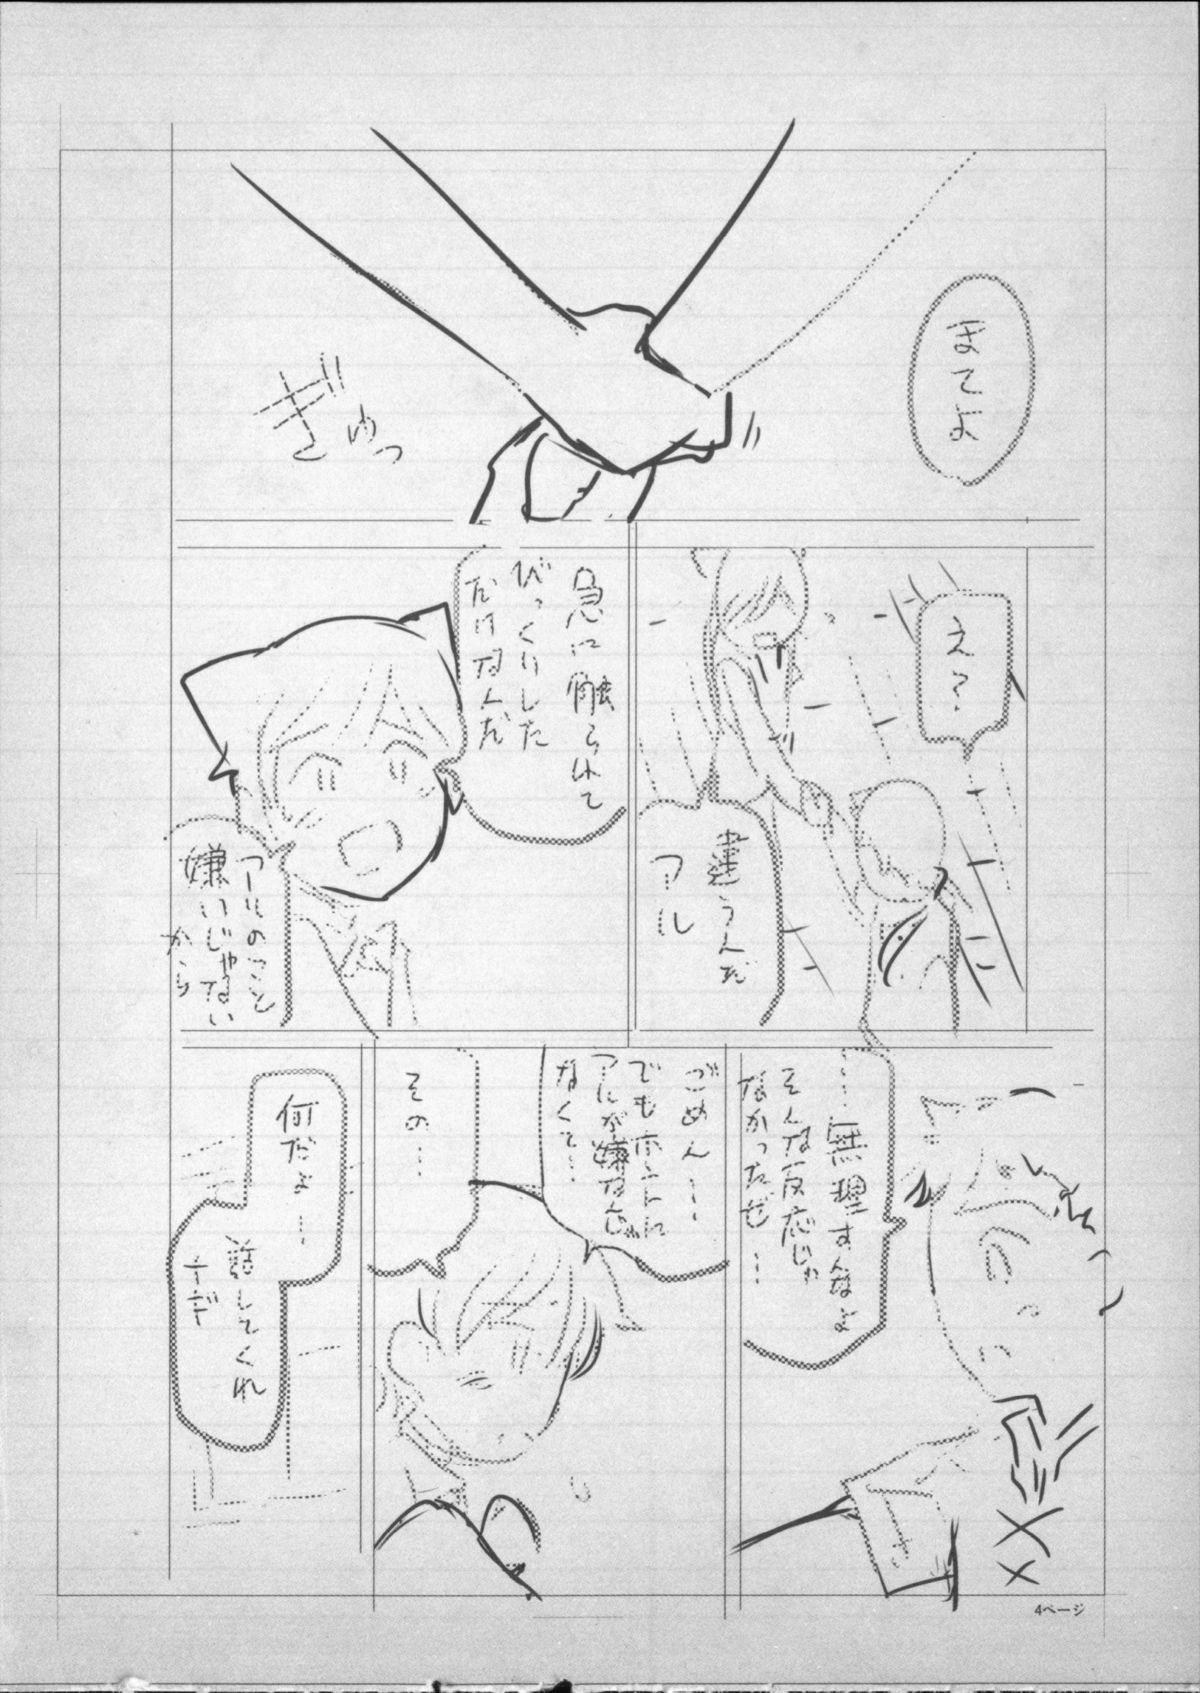 まてよ
ぎゅっ
え?
違うんだ
アル
急に触られて
びっくりした
だけなんだ
アルのこと
嫌いじゃない
から
…無理すんなよ
そんな反応じゃ
なかったぜ…
ごめん…
でもホントに
アルが嫌なんじゃ
なくて…
その…
何だよ…
話してくれ
4ページ